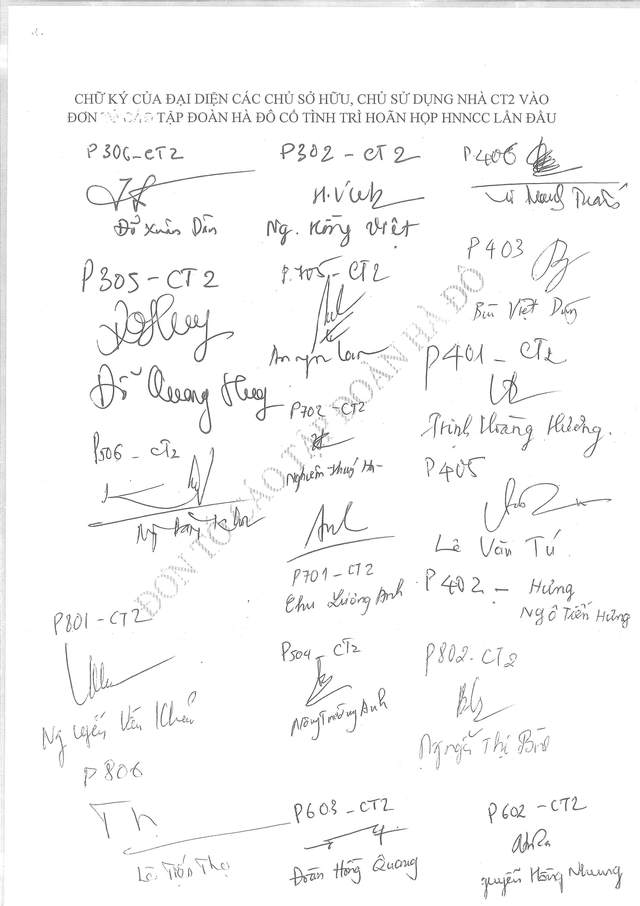 CHỮ KÝ CỦA ĐẠI DIỆN CÁC CHỦ SỞ HỮU, CHỦ SỬ DỤNG NHÀ CT2 VÀO
ĐƠN TỐ CÁO TẬP ĐOÀN HÀ ĐÔ CỐ TÌNH TRÌ HOÃN HỌP HNNCC LẦN ĐẦU
P306-CT2
Đỗ Xuân Dần
P302-CT2
H.Việt
Ng. Hồng Việt
P406
P305-CT2
Đỗ Quang Huy
P.705-CT2
P403
Bùi Việt Dũng
P401-CT2
Trịnh Hoàng Hương.
P506-CT2
P702-CT2
Nghiêm Thuý Hà
P405
Lê Văn Tú
Anh
P701-CT2
Chu Lương Anh
P402- Hưng
Ngô Tiến Hưng
P801-CT2
Nguyễn Văn
P504-CT2
Nông Trường Anh
P802.CT2
Thị
P806
Th
Lê Tiến Thọ
P603-CT2
Đoàn Hồng Quang
P602-CT2
Nguyễn Hồng Nhung
ĐƠN TỐ CÁO TẬP ĐOÀN HÀ ĐÔ